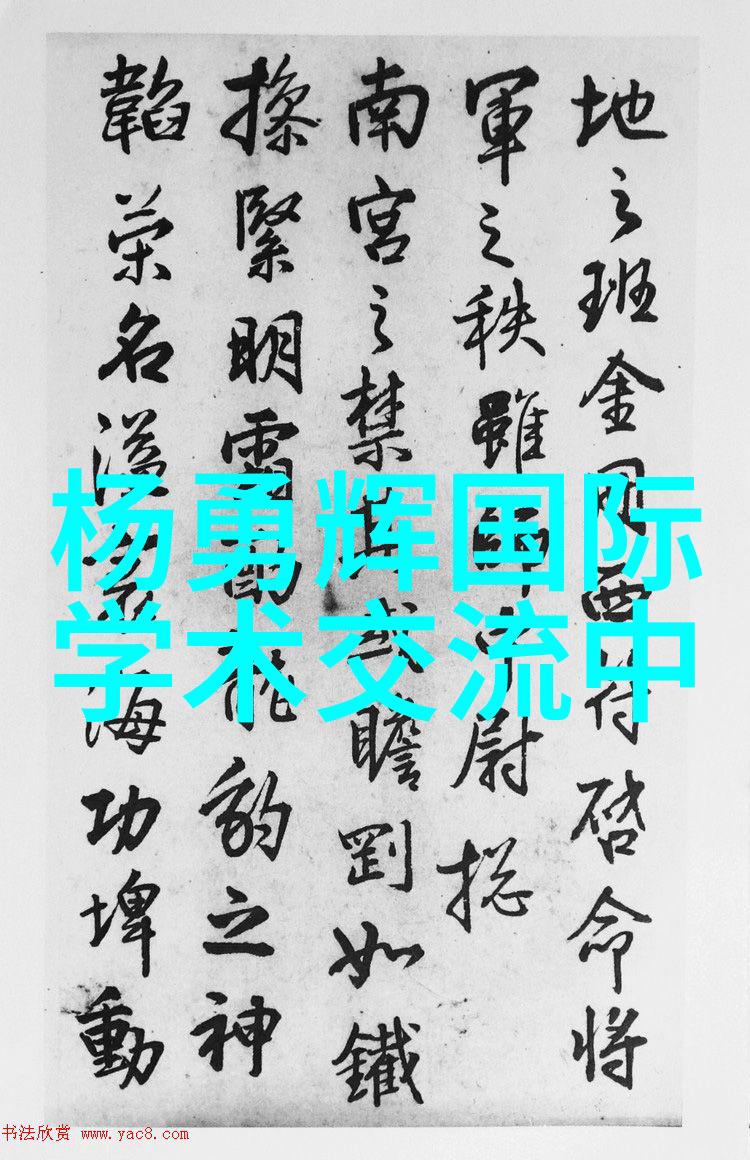 地之班金西符啓命将
軍之秩雖中尉揔
南宮之禁瞻如鐵
操緊明霜豹之神
韜榮名溢海功埤動
杨勇辉国际
学术交流中
书法欣赏 www.yac8.com